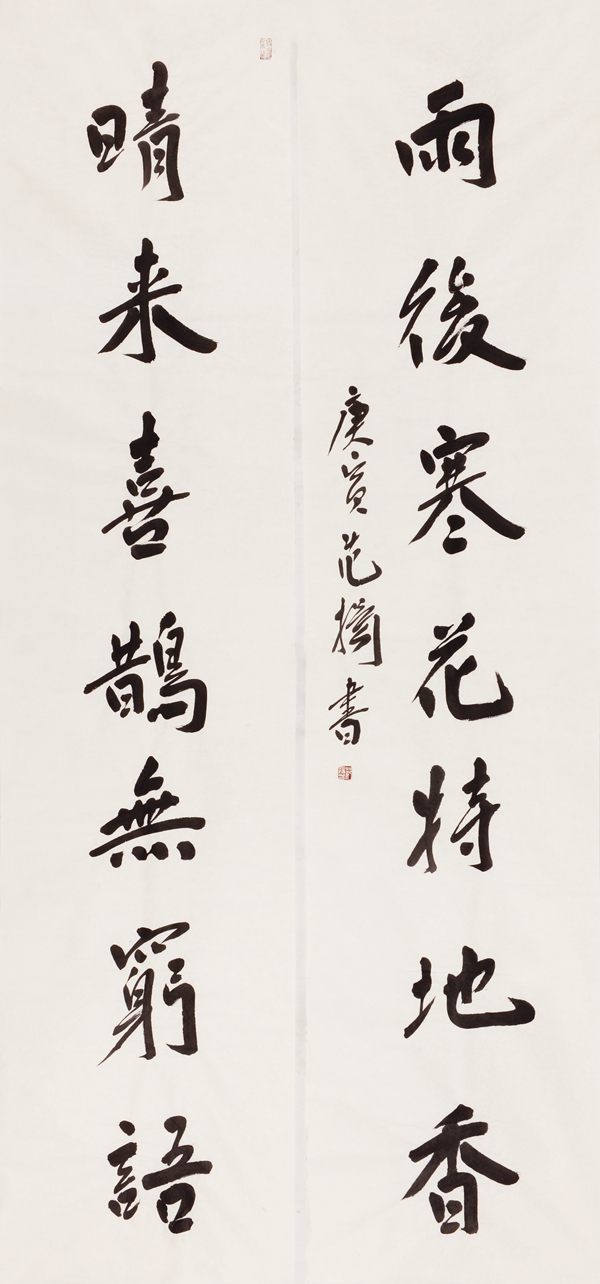 晴来喜鵲無窮語
雨後寒花特地香
庚寅范書